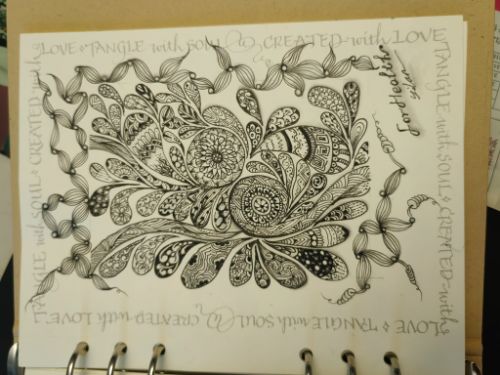 LOVE ⬥ TANGLE with SOUL
CREATED-with LOVE
TANGLE with SOUL ⬥ CREATED-with
LOVE ⬥ TANGLE with SOUL
CREATED with LOVE
TANGLE with SOUL ⬥ CREATED with